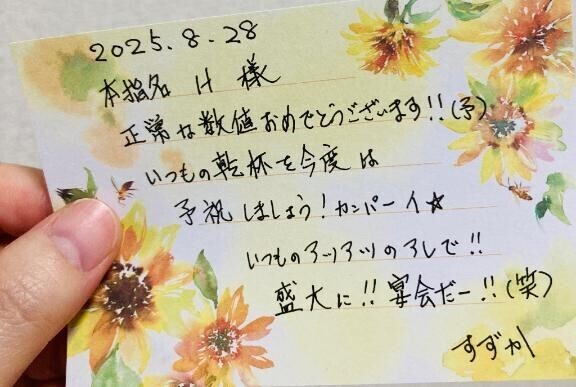 2025.8.28
本指名 H 様
正常な数値おめでとうございます!!(予)
いつもの乾杯を今度は
予祝しましょう!カンパーイ☆
いつものアツアツのアレで!!
盛大に!!宴会だー!!(笑)
すずか